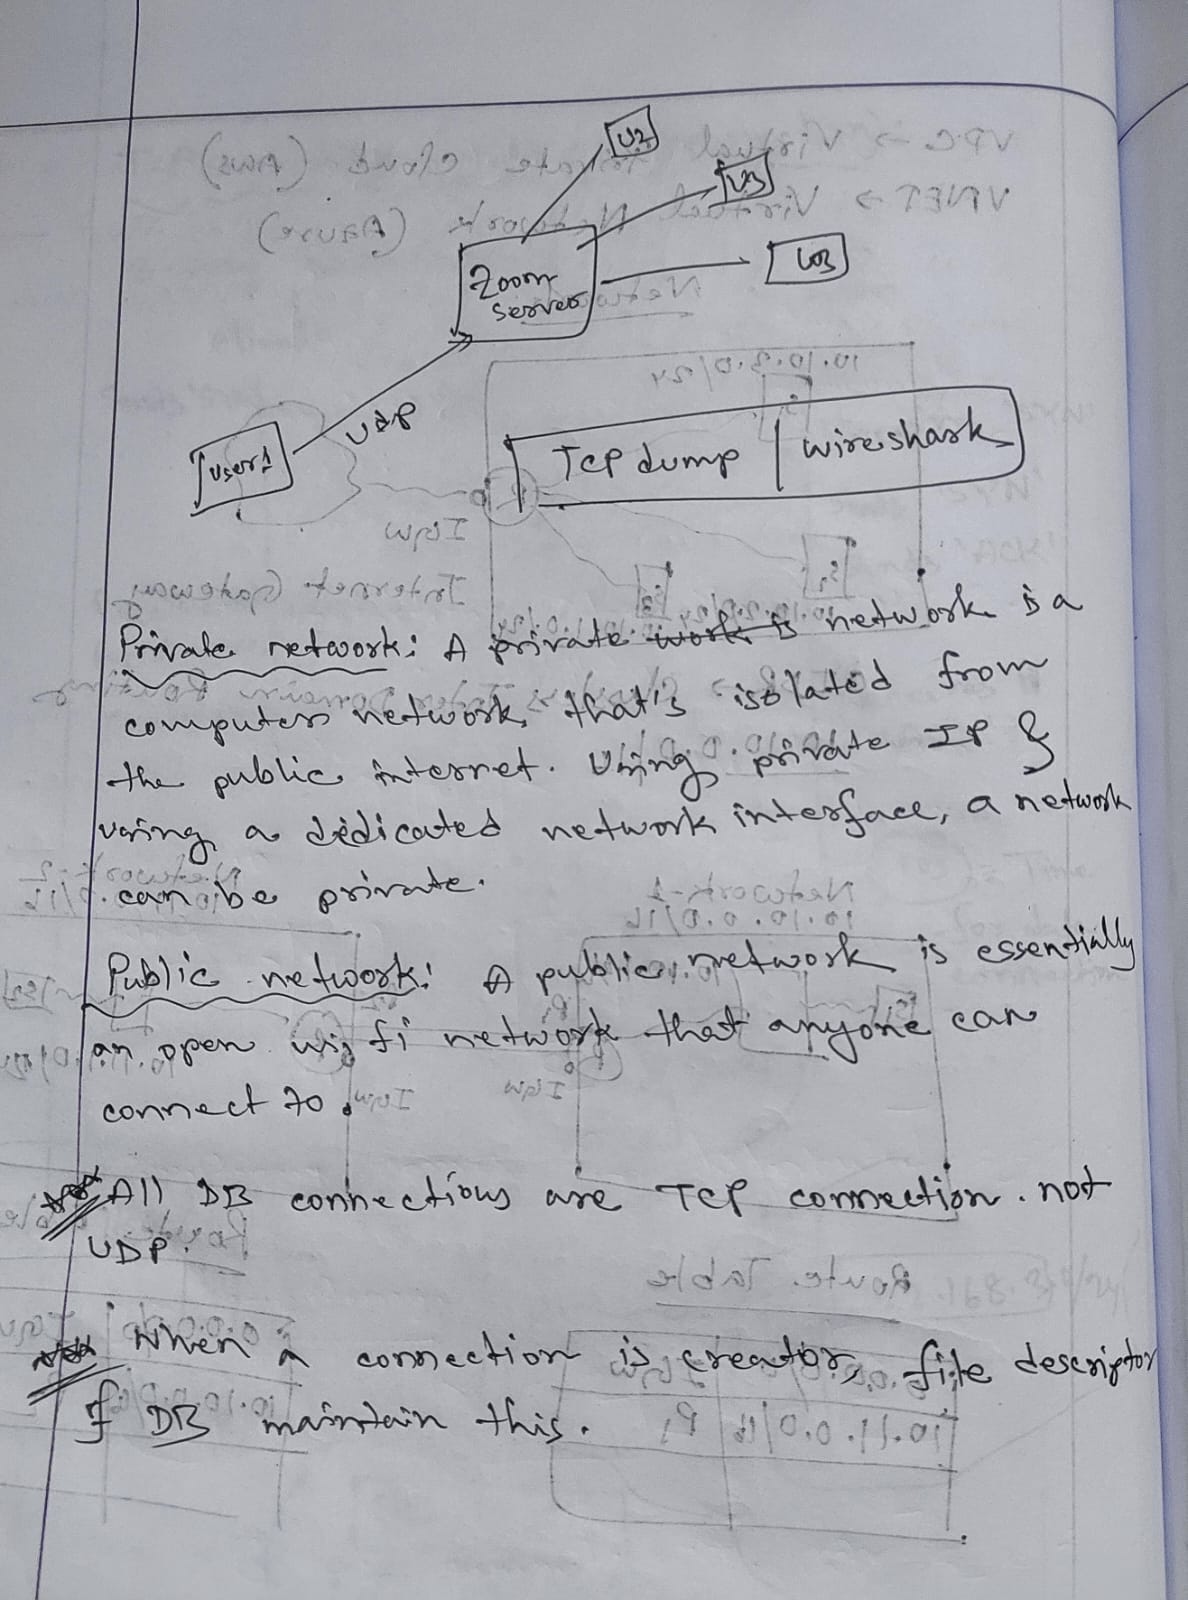 U2
U3
U3
Zoom
server
UDP
User1
Tcp dump | wireshark
Private network: A private work is network is a
computer network that's isolated from
the public internet. Using private IP &
using a dedicated network interface, a network
can be private.
Public network: A public network is essentially
an open wifi network that anyone can
connect to.
All DB connections are TCP connection. not
UDP.
When a connection is creator, file descriptor
& DB maintain this.